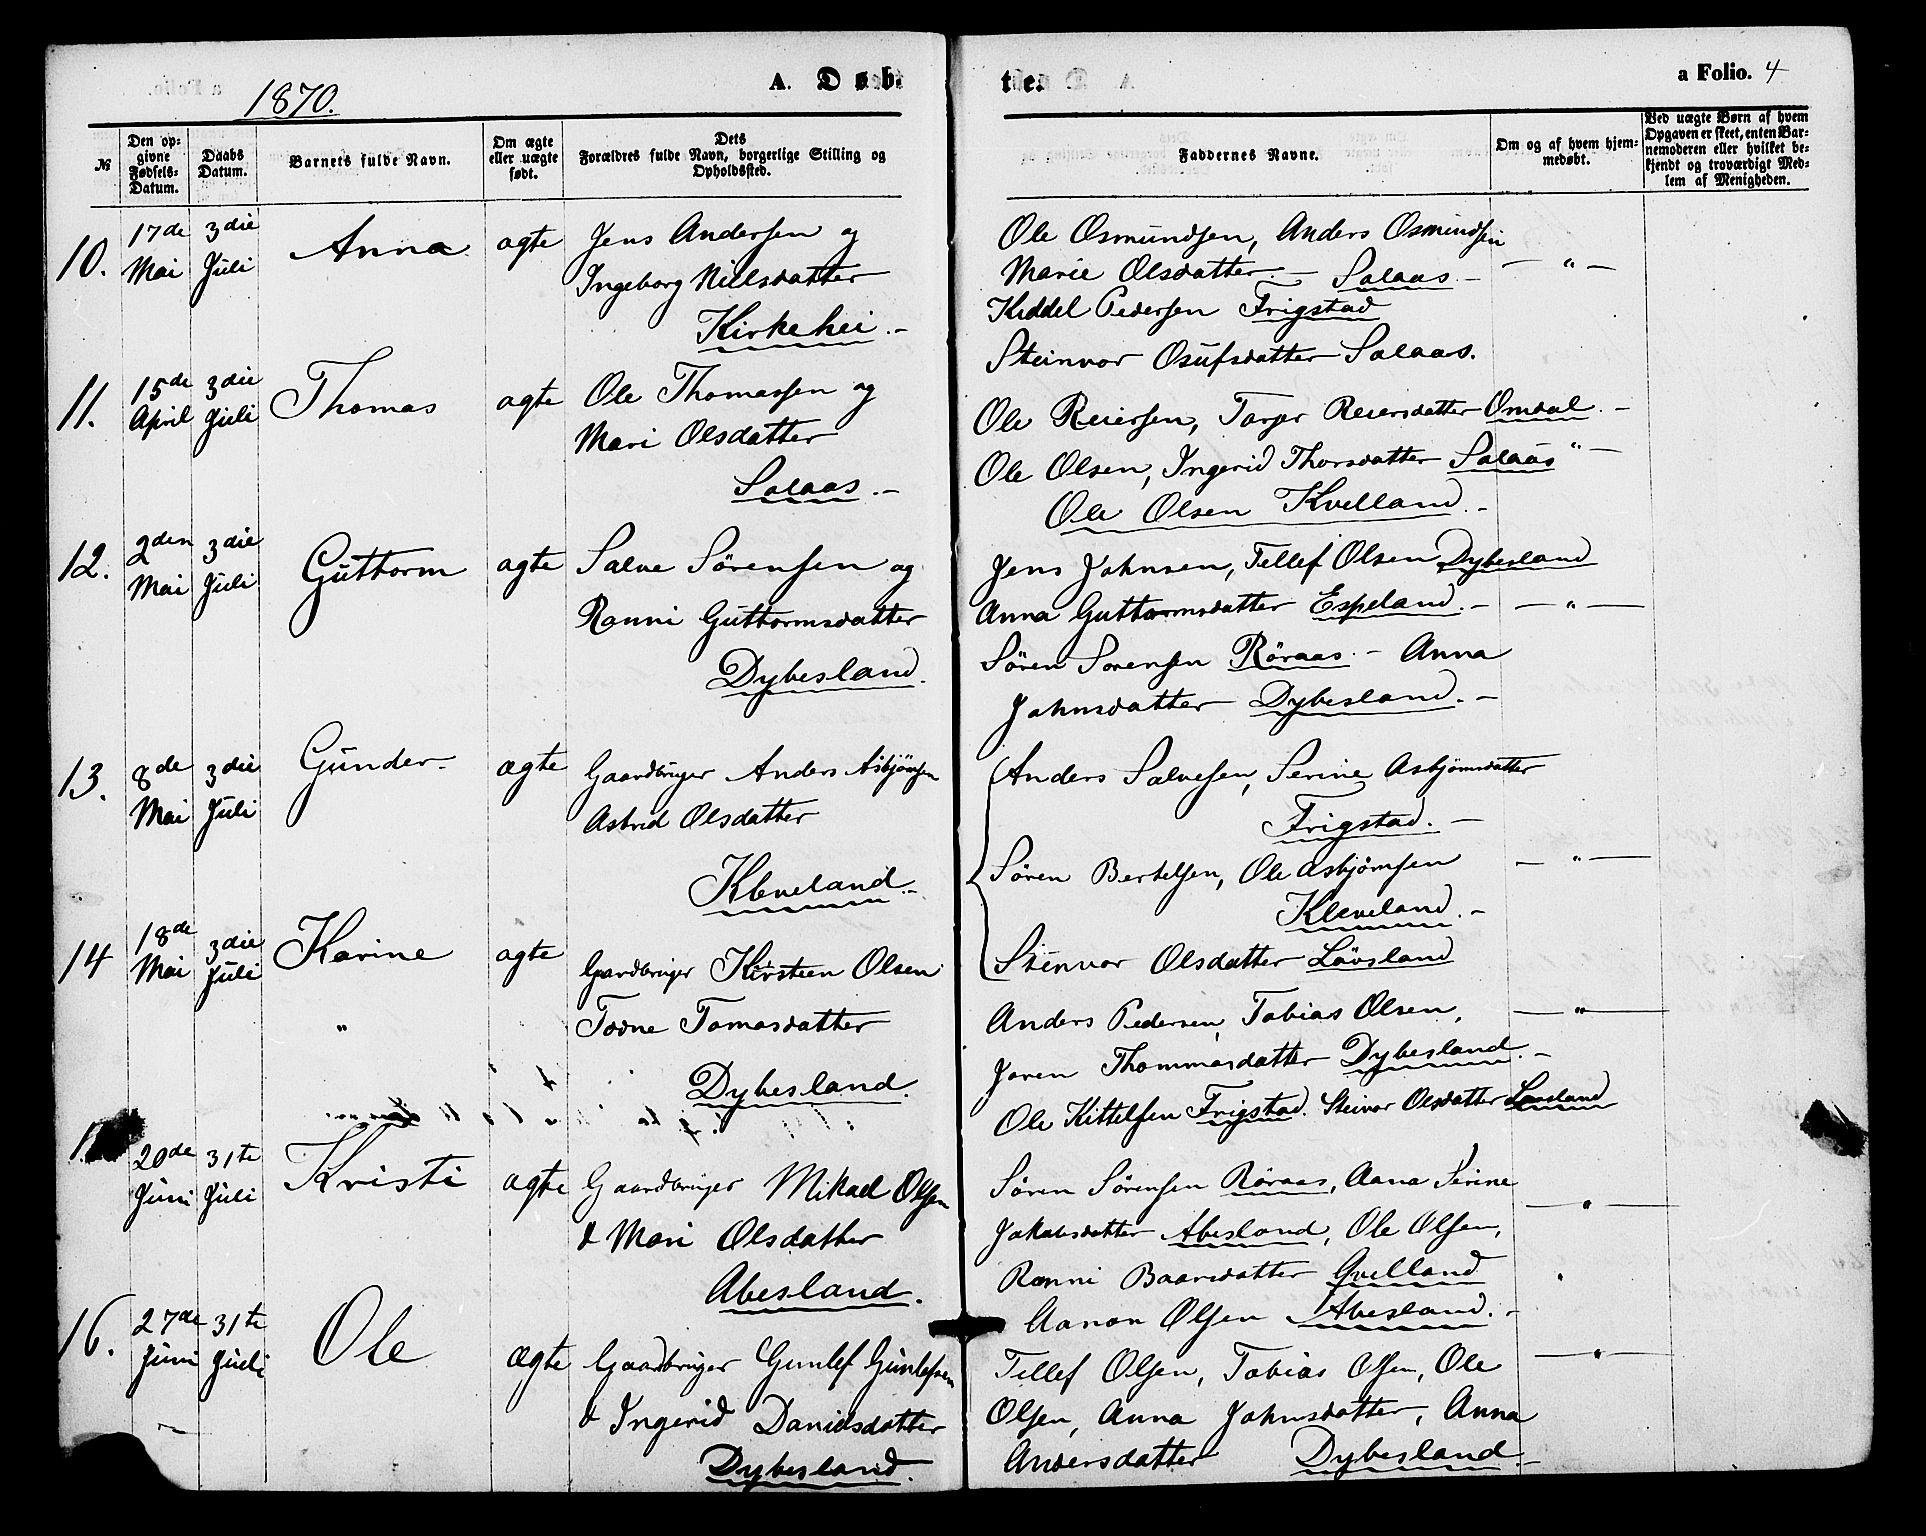 1870.
A. Døb-
te.
a Folio. 4
№
Den op-
givne
Fødsels-
Datum.
Daabs
Datum.
Barnets fulde Navn.
Om ægte
eller uægte
født.
Dets
Forældres fulde Navn, borgerlige Stilling og
Opholdssted.
Faddernes Navne.
Om og af hvem hjem-
medøbt.
Ved uægte Børn af hvem
Opgaven er skeet, enten Bar-
nemoderen eller hvilket be-
kjendt og troværdigt Med-
lem af Menigheden.
10.
17de
Mai
3die
Juli
Anna
ægte
Jens Andersen og
Ingeborg Nillsdatter
Kirkehei.-
Ole Osmundsen, Anders Osmundsen
Marie Olsdatter.- Salaas.-
Kiddel Pedersen Frigstad
Steinvor Osufsdatter Salaas.
- " -
11.
15de
April
3die
Juli
Thomas
ægte
Ole Thomassen og
Mari Olsdatter
Salaas.-
Ole Reiersen, Reiersdatter Omdal.-
Ole Olsen, Ingerid Thorsdatter Salaas
Ole Olsen Kvelland.-
" -
12.
2den
Mai
3die
Juli
Guttorm
ægte
Salve Sörensen og
Ranni Guttormsdatter
Dybesland.
Jens Johnsen, Tellef Olsen Dybesland
Anna Guttormsdatter Espeland.-
Sören Sorensen Röraas.- Anna
Johnsdatter Dybesland.-
- " -
13.
8de
Mai
3die
Juli
Gunder-
ægte
Gaardbruger Anders Asbjörnsen
Astrid Olsdatter
Kleveland.-
Anders Salvesen, Serine Asbjörnsdatter
Frigstad.-
Sören Bertelsen, Ole Asbjörnsen
Kleveland.-
Steinvor Olsdatter Lövsland
- " -
14
18de
Mai
3die
Juli
Karine
"
ægte
Gaardbruger Kirsteen Olsen
Todne Tomasdatter
Dybesland.
Anders Pedersen, Tobias Olsen,
Joren Thommasdatter Dybesland.-
Ole Kittelsen Frigstad. Steinvor Olsdatter
- " -
20de
Juni
31te
Juli
Kristi
ægte
Gaardbruger Mikael Olsen
& Mari Olsdatter
Abesland.
Sören Sörensen Röraas, Aana Serine
Jakobsdatter Abesland, Ole Olsen,
Ranni Baarsdatter Qvelland
Aanon Olsen Abesland.-
- " -
16.
27de
Juni
31te
Juli
Ole
ægte
Gaardbruger Gunlef Gunlefsen
& Ingerid Danielsdatter
Dybesland.
Tellef Olsen, Tobias Olsen, Ole
Olsen, Anna Johnsdatter, Anna
Andersdatter Dybesland.-
- " -